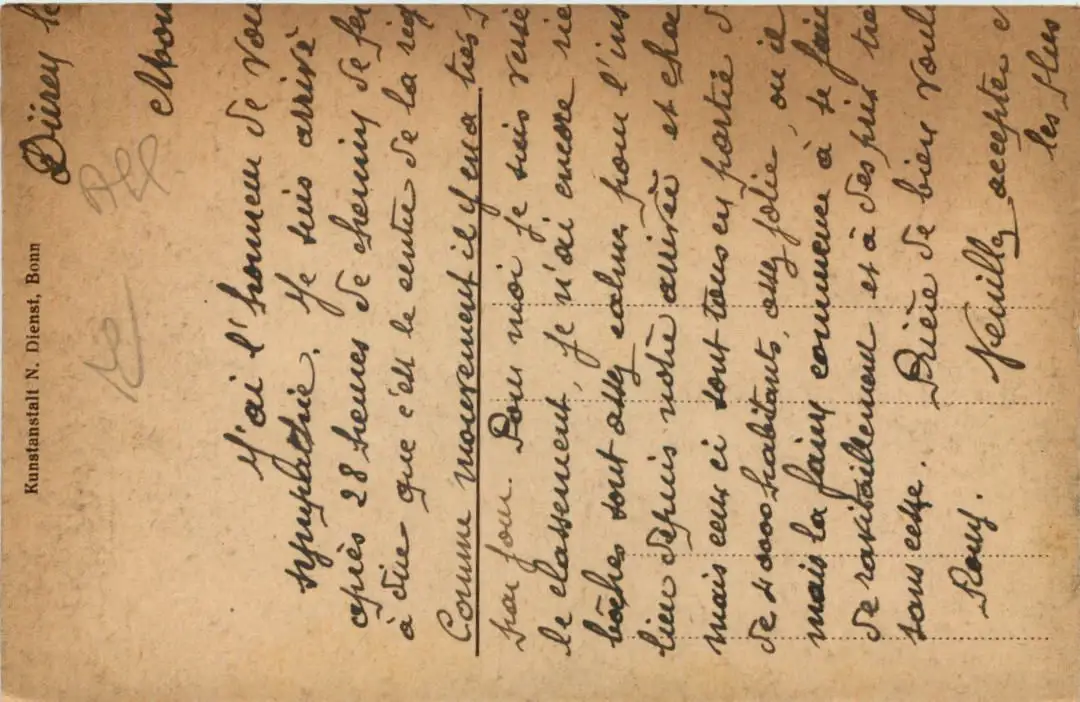 Kunstanstalt N. Dienst, Bonn
Düren le
Mon
J'ai l'honneur de vou
sympathie. Je suis arrivé
après 28 heures de chemin de fer
à dire que c'est le centre de la rég
Comme mouvement il y en a très
par jour. Pour moi je suis
le classement, je n'ai encore rie
bôches sont assez calmes pour l'ins
lieu depuis notre arrivée et cha
mais ceux ci sont tous en partie d
habitants, assez jolie, ou il
mais la faim commence à se fair
de ravitaillement et à des prix trè
sans cesse. Prière de bien voul
Veuillez accepter
les plus